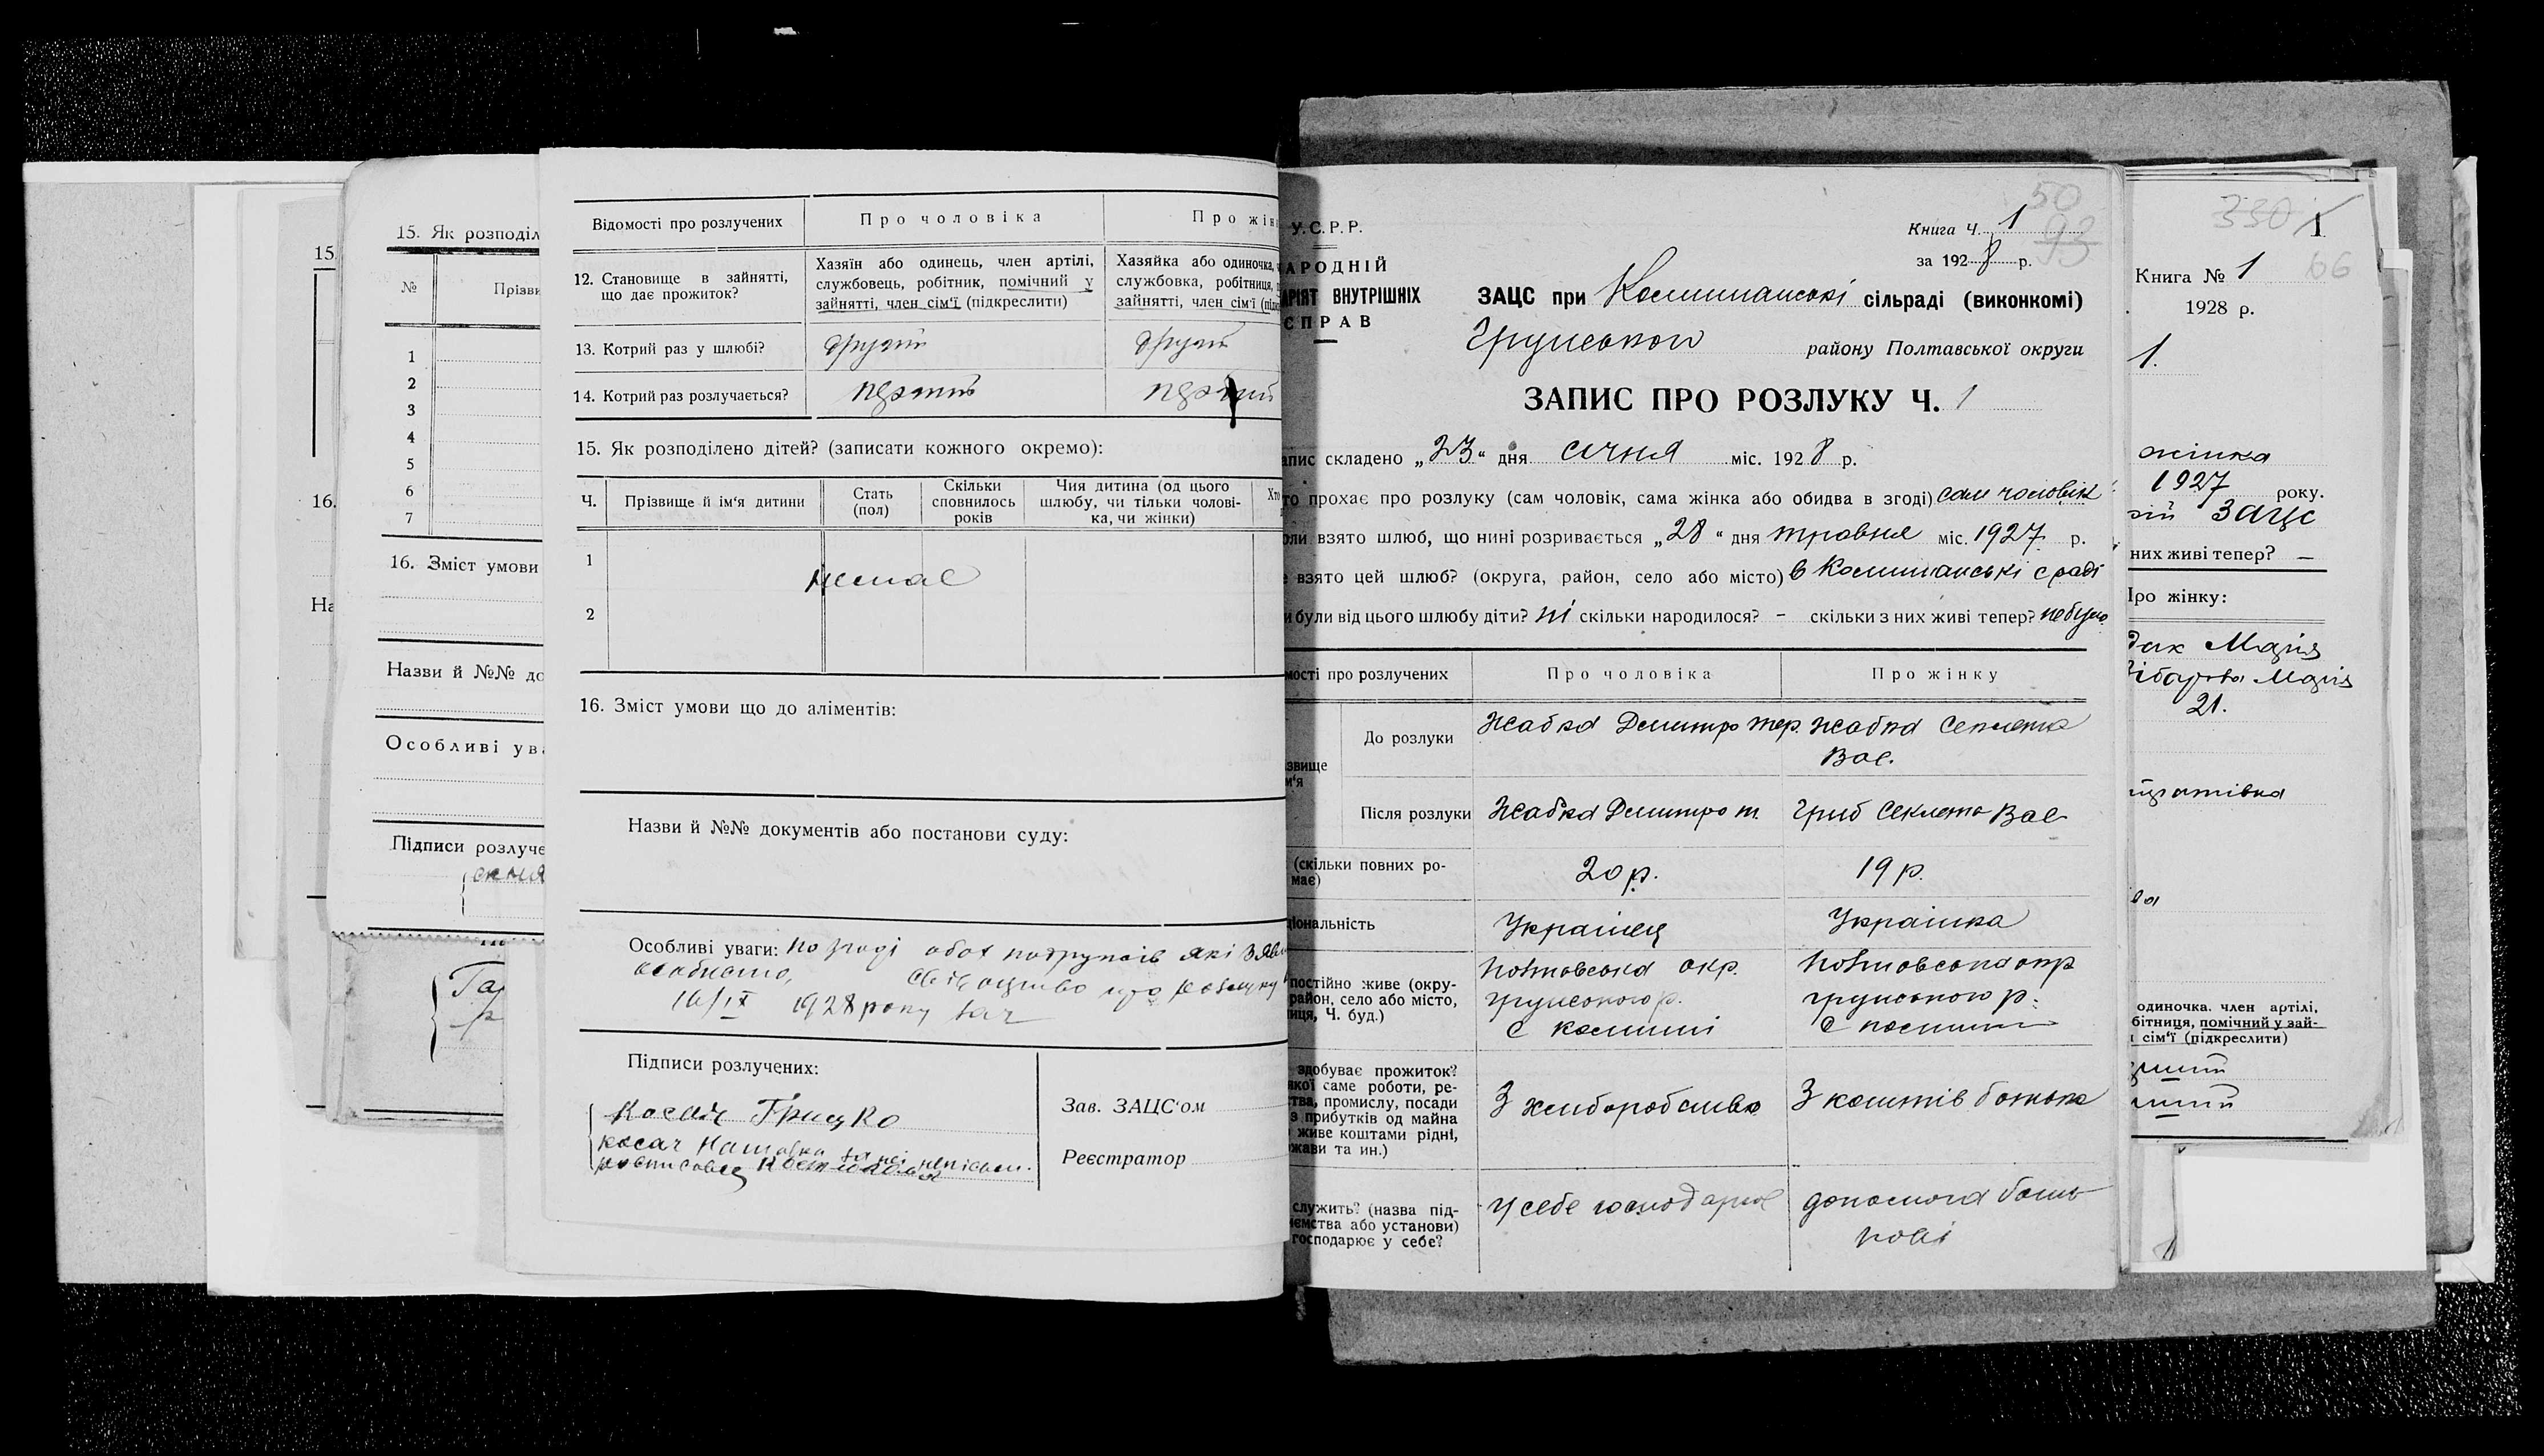 15.
16.
На
15. Як розподіл
№
Прізви
1
2
3
4
5
6
7
16. Зміст умови
Назви й №№ до
Особливі ува
Підписи розлуче
Відомості про розлучених
Про чоловіка
Про жін
12. Становище в зайнятті, що дає прожиток?
Хазяїн або одинець, член артілі,
службовець, робітник, помічний у
зайнятті, член сім'ї (підкреслити)
Хазяйка або одиночка,
службовка, робітниця, п
зайнятті, член сім'ї (під
13. Котрий раз у шлюбі?
другий
другий
14. Котрий раз розлучається?
перший
15. Як розподілено дітей? (записати кожного окремо):
Ч.
Прізвище й ім'я дитини
Стать (пол)
Скільки сповнилось років
Чия дитина (од цього шлюбу, чи тільки чоловіка, чи жінки)
Хто
1
немає
2
16. Зміст умови що до аліментів:
Назви й №№ документів або постанови суду:
Особливі уваги: по згоді обох подружжів які зяви
особисто,
16/IX 1928 року
Підписи розлучених:
Косач Грицко
косач
Зав. ЗАЦС'ом
Реєстратор
У.С.Р.Р.
АРОДНІЙ
АРІЯТ ВНУТРІШНІХ
СПРАВ
50
93
Книга Ч. 1
за 1928 р.
ЗАЦС при Комишанські сільраді (виконкомі)
Грунського району Полтавської округи
ЗАПИС ПРО РОЗЛУКУ Ч. 1
апис складено „23" дня січня міс. 1928 р.
то прохає про розлуку (сам чоловік, сама жінка або обидва в згоді) сам чоловік
оли взято шлюб, що нині розривається „28" дня травня міс. 1927 р.
е взято цей шлюб? (округа, район, село або місто) в Комишанські с раді
и були від цього шлюбу діти? ні скільки народилося? - скільки з них живі тепер? не було
мості про розлучених
Про чоловіка
Про жінку
звище
м'я
До розлуки
Жабка Демитро тер.
Жабка Секлета
Вас.
Після розлуки
Жабка Демитро т.
Гриб Секлета Вас
(скільки повних ро-
має)
20 р.
19 р.
ціональність
Українец
Українка
постійно живе (окру-
район, село або місто,
лиця, Ч. буд.)
Полтавська окр.
грунського р.
с комиші
Полтавська окр
грунського р.
с комиші
здобуває прожиток?
якої саме роботи, ре-
тва, промислу, посади
з прибутків од майна
живе коштами рідні,
жави та ин.)
З хліборобства
З коштів батька
служить? (назва під-
ємства або установи)
господарює у себе?
У себе господарює
допомога бать-
кові
330
1
66
Книга № 1
1928 р.
1.
жінка
1927 року.
ЗАЦС
них живі тепер? —
Про жінку:
Марія
Марія
21.
одиночка. член артілі,
бітниця, помічний у зай-
сім'ї (підкреслити)